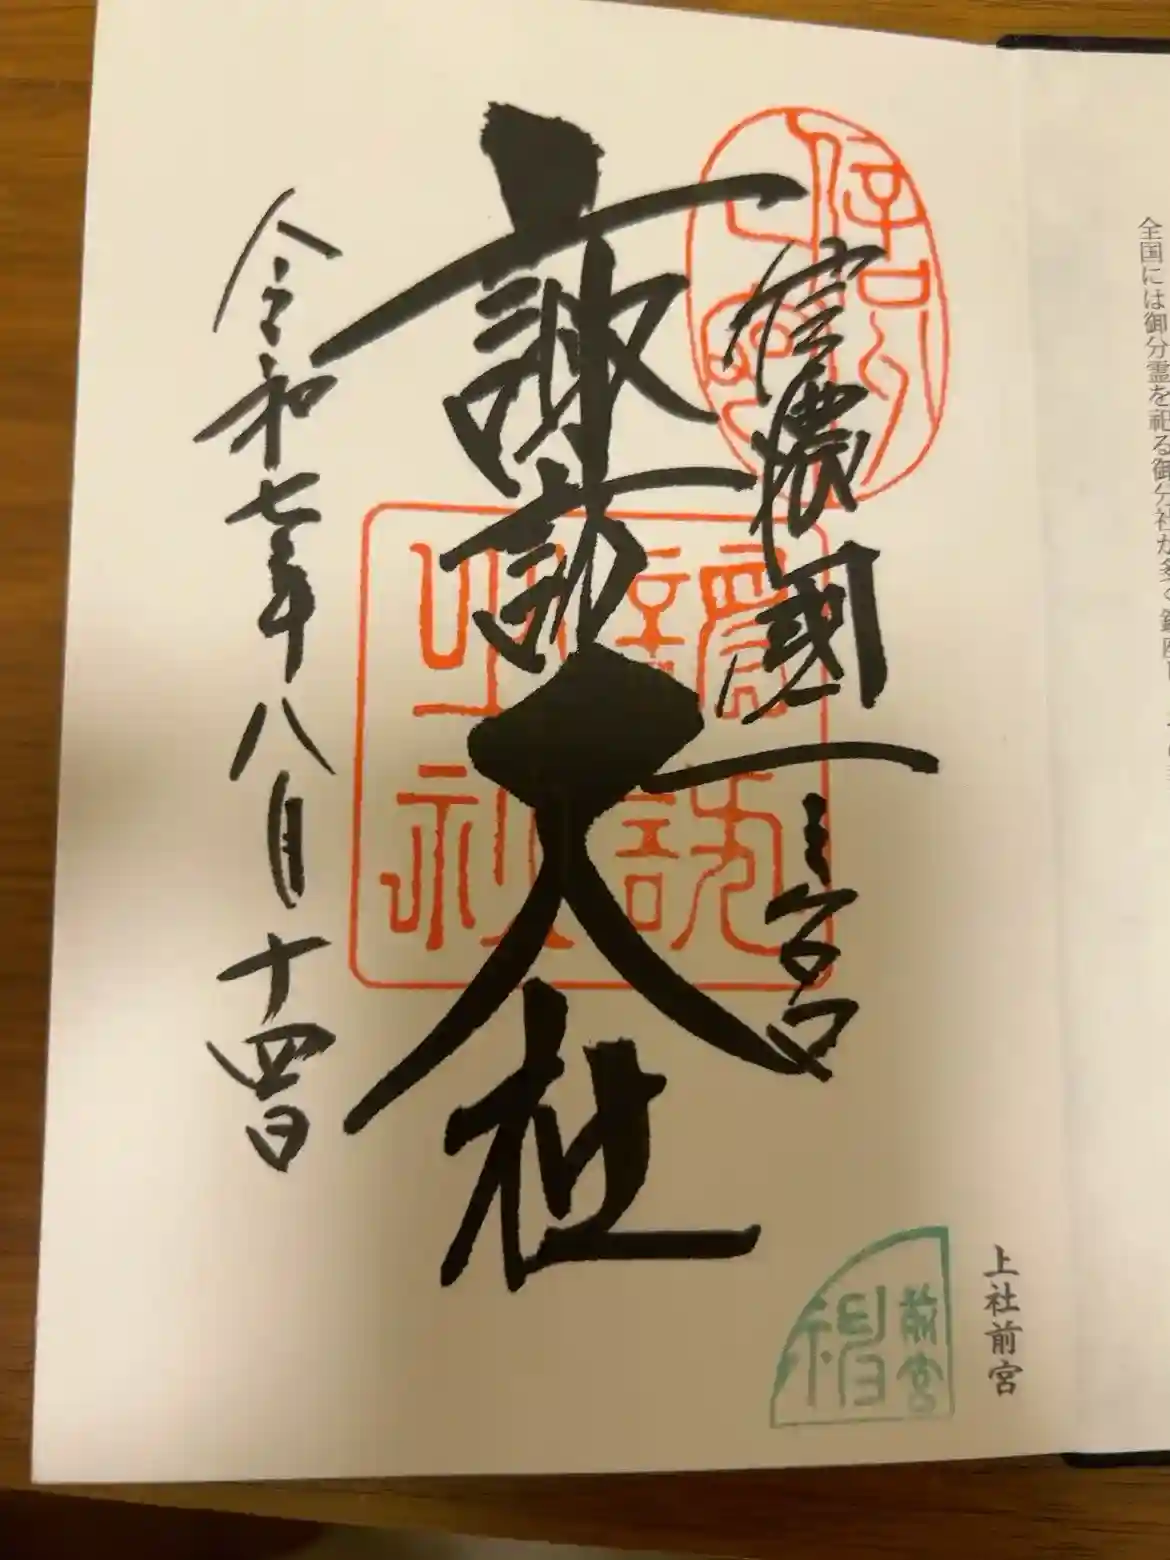 全国には御分霊を祀る御分社が多く鎮座し
信濃國一之宮
諏訪大社
令和七年八月十四日
上社前宮
前宮